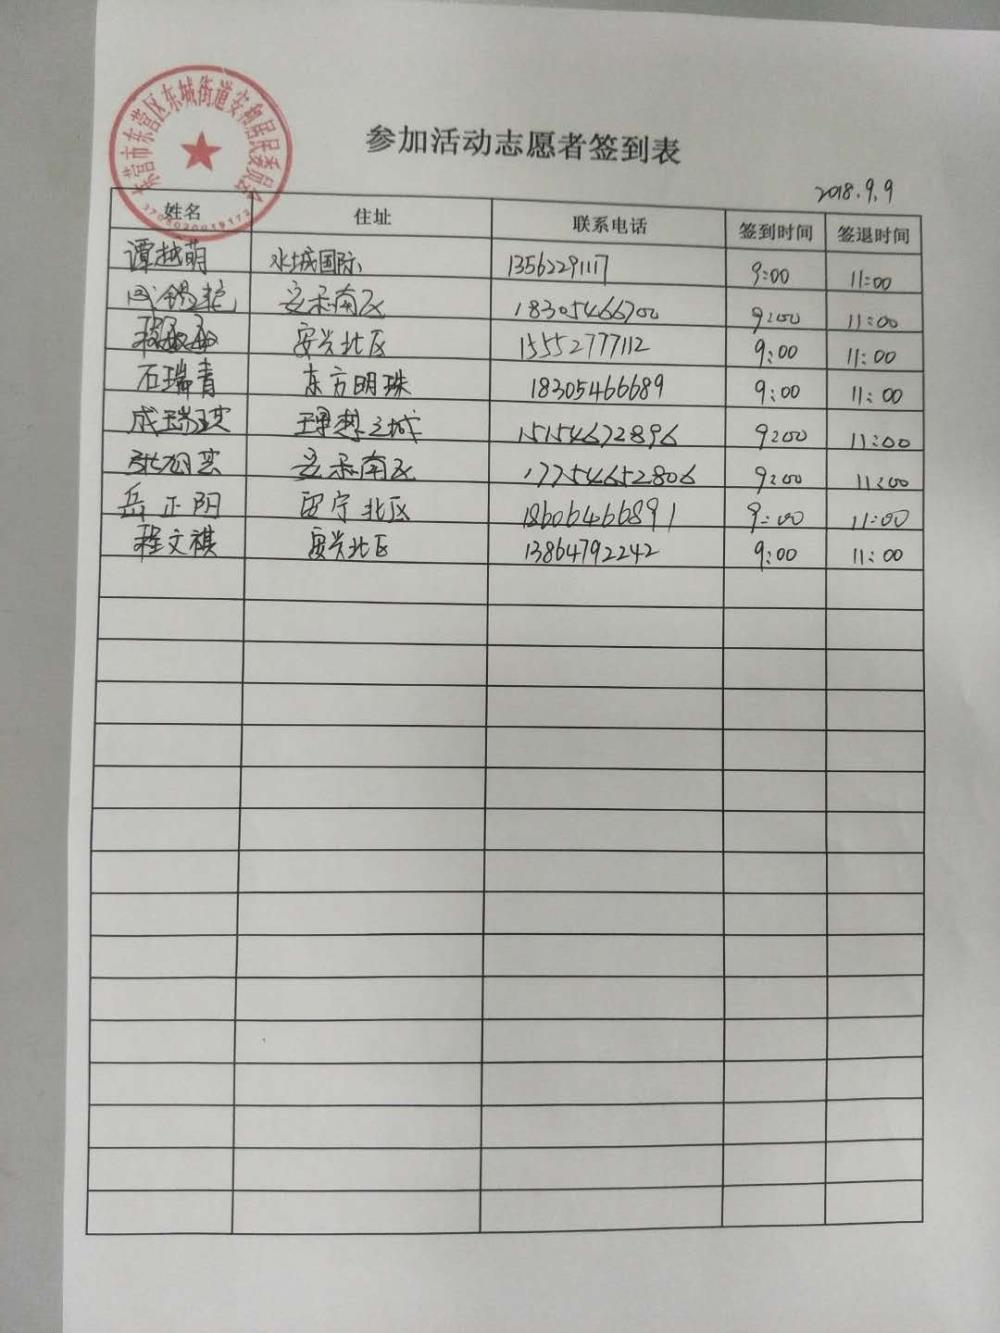 东营市东营区东城街道安和居民委员会
参加活动志愿者签到表
2018.9.9
姓名 住址 联系电话 签到时间 签退时间
谭越萌 水城国际 13562291117 9:00 11:00
安和南区 18305466700 9:00 11:00
程敏敏 安兴北区 15552777112 9:00 11:00
石瑞青 东方明珠 18305466689 9:00 11:00
成瑞琪 理想之城 15154672896 9:00 11:00
安和南区 17754652806 9:00 11:00
岳正阳 西宁北区 18606466891 9:00 11:00
程文祺 安兴北区 13864792242 9:00 11:00